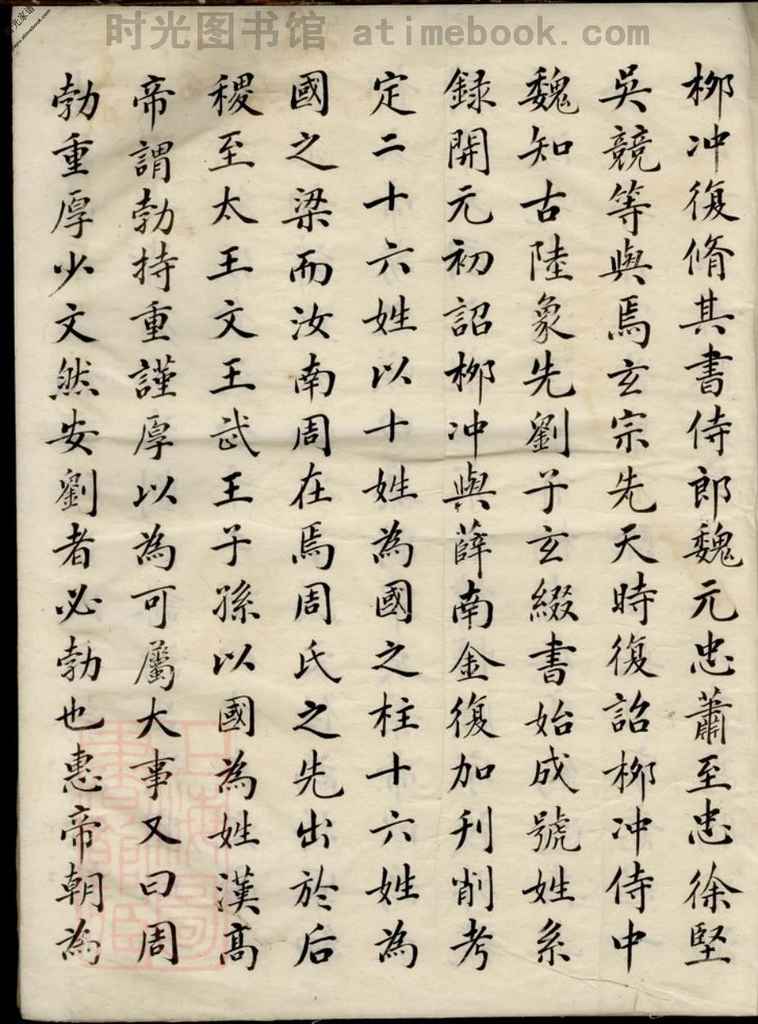 时光图书馆 atimebook.com
柳冲復脩其書侍郎魏元忠蕭至忠徐堅
吳競等與焉玄宗先天時復詔柳冲侍中
魏知古陸象先劉子玄綴書始成號姓系
録開元初詔柳冲與薛南金復加刋削考
定二十六姓以十姓為國之柱十六姓為
國之梁而汝南周在焉周氏之先出於后
稷至太王文王武王子孫以國為姓漢高
帝謂勃持重謹厚以為可屬大事又曰周
勃重厚少文然安劉者必勃也惠帝朝為